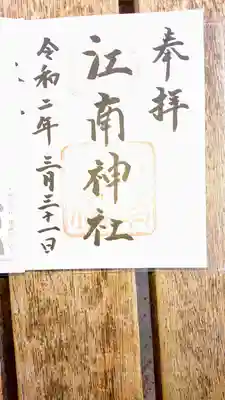 奉拝
江南神社
令和二年三月三十一日